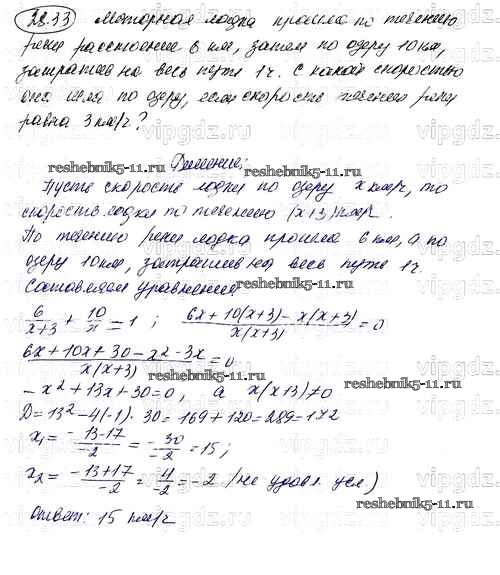 22.33 Моторная лодка прошла по течению
реки расстояние 6 км, затем по озеру 10 км,
затратив на весь путь 1 ч. С какой скоростью
она шла по озеру, если скорость течения реки
равна 3 км/ч?
vipgdz.ru
Решение:
reshebnik5-11.ru reshebnik5-11.ru
Пусть скорость лодки по озеру x км/ч, то
скорость лодки по течению (x+3) км/ч.
По течению реки лодка прошла 6 км, а по
озеру 10 км, затратив на весь путь 1 ч.
Составляем уравнение:
6/(x+3) + 10/x = 1 ; (6x + 10(x+3) - x(x+3))/(x(x+3)) = 0
(6x + 10x + 30 - x² - 3x)/(x(x+3)) = 0
reshebnik5-11.ru
-x² + 13x + 30 = 0, а x(x+3) ≠ 0
D = 13² - 4(-1)·30 = 169 + 120 = 289 = 17²
x₁ = (-13-17)/(-2) = (-30)/(-2) = 15;
reshebnik5-11.ru
x₂ = (-13+17)/(-2) = 4/(-2) = -2 (не удовл. усл.)
reshebnik5-11.ru
Ответ: 15 км/ч